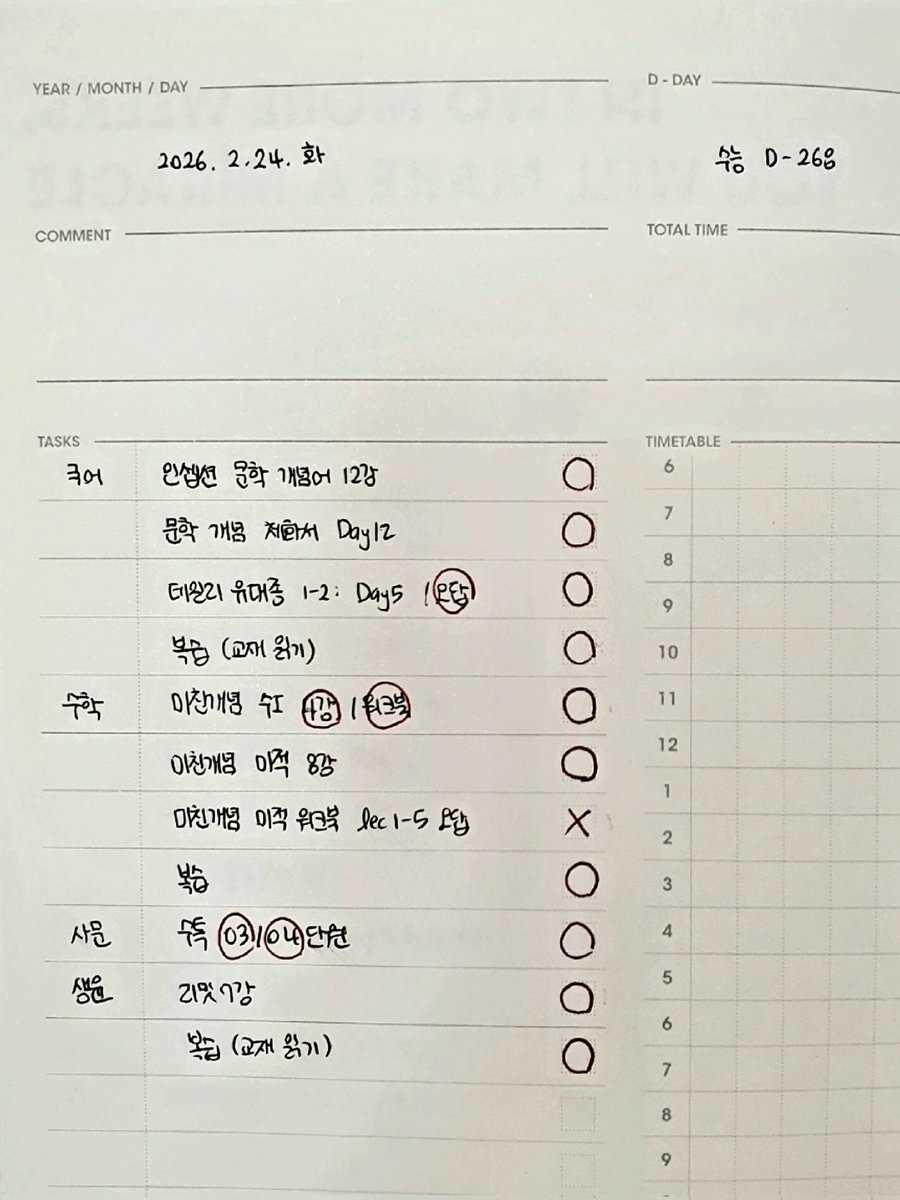 YEAR / MONTH / DAY
2026. 2. 24. 화
D - DAY
수능 D-268
COMMENT
TOTAL TIME
TASKS
국어 인셉션 문학 개념어 12강
문학 개념 지화서 Day12
데일리 유대종 1-2: Day5 / 오답
복습 (교재 읽기)
수학 미친개념 수I 4강 / 워크북
미친개념 미적 8강
미친개념 미적 워크북 lec 1-5 오답
복습
사문 수특 03 / 04 단원
생윤 리밋 7강
복습 (교재 읽기)
TIMETABLE
6
7
8
9
10
11
12
1
2
3
4
5
6
7
8
9